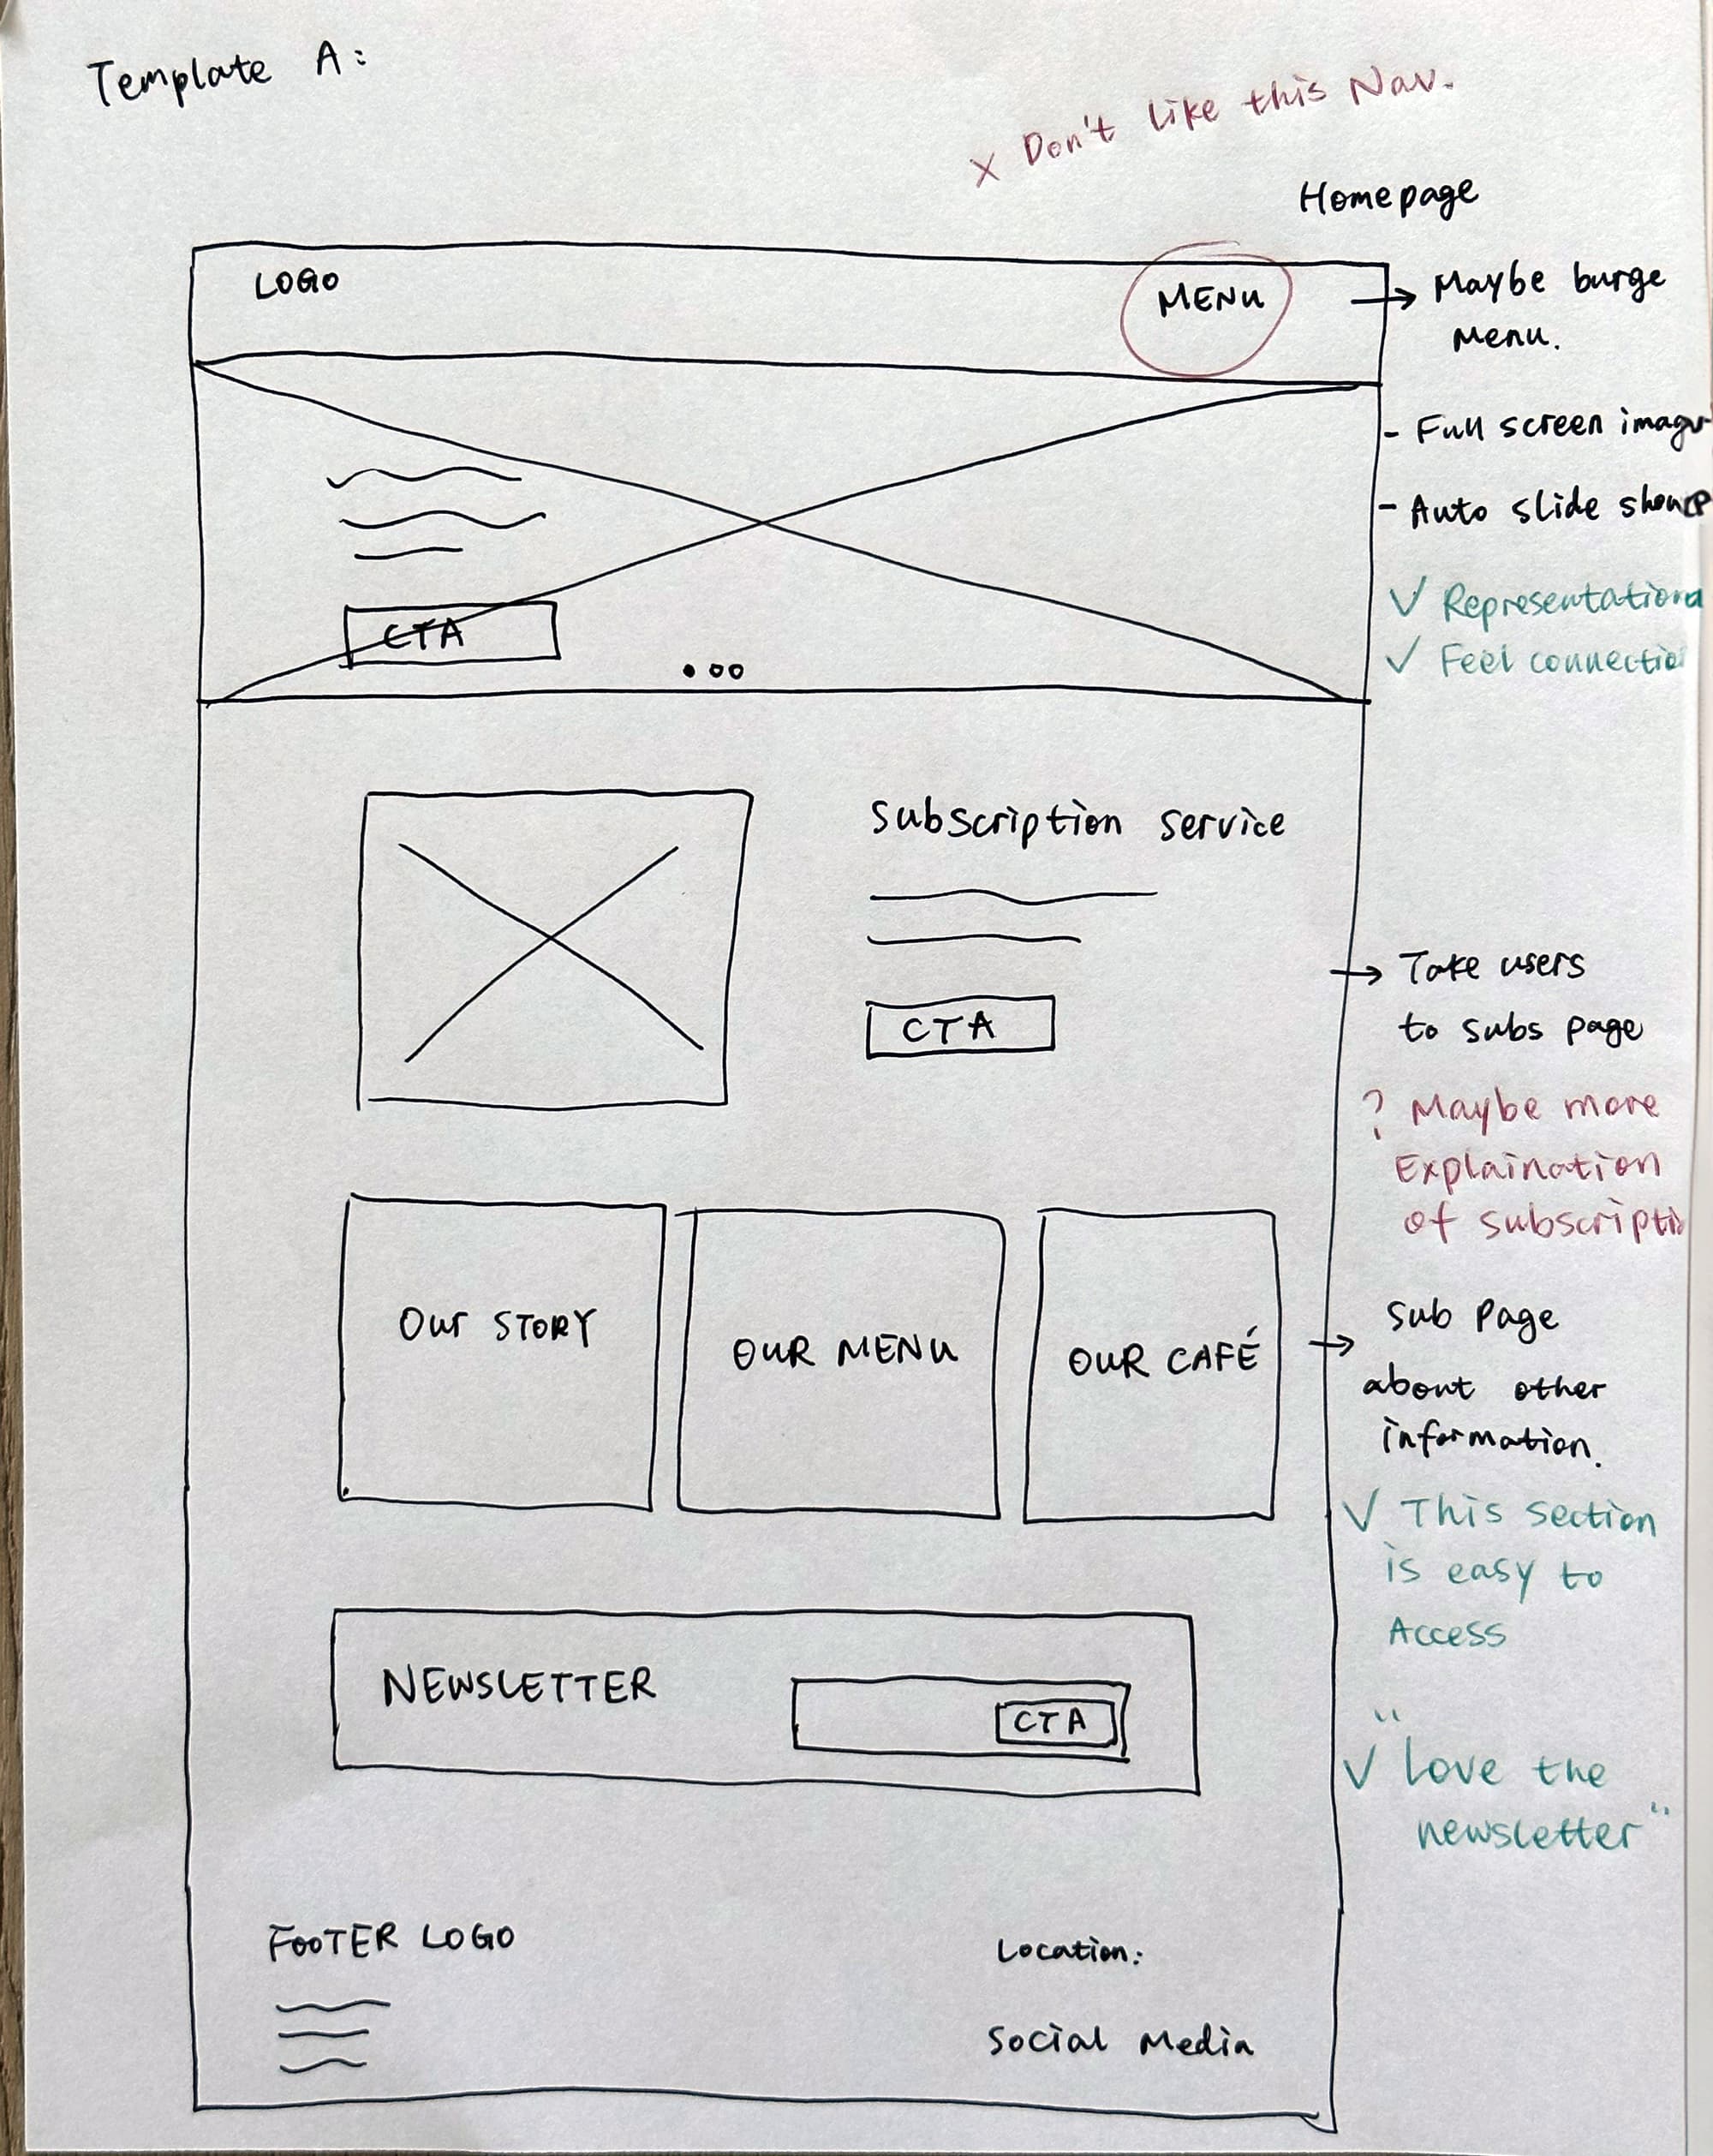 Template A:
x Don't like this Nav.
Homepage
LOGO
MENU
Maybe burge
menu.
- Full screen
- Auto slide
✓ Representationa
✓ Feel connectio
CTA
Subscription service
CTA
Take users
to subs page
? Maybe more
Explaination
of subscripti
Our STORY
OUR MENU
OUR CAFÉ
Sub Page
about other
information.
✓ This section
is easy to
Access
NEWSLETTER
CTA
✓ "Love the
newsletter"
FOOTER LOGO
Location:
Social Media